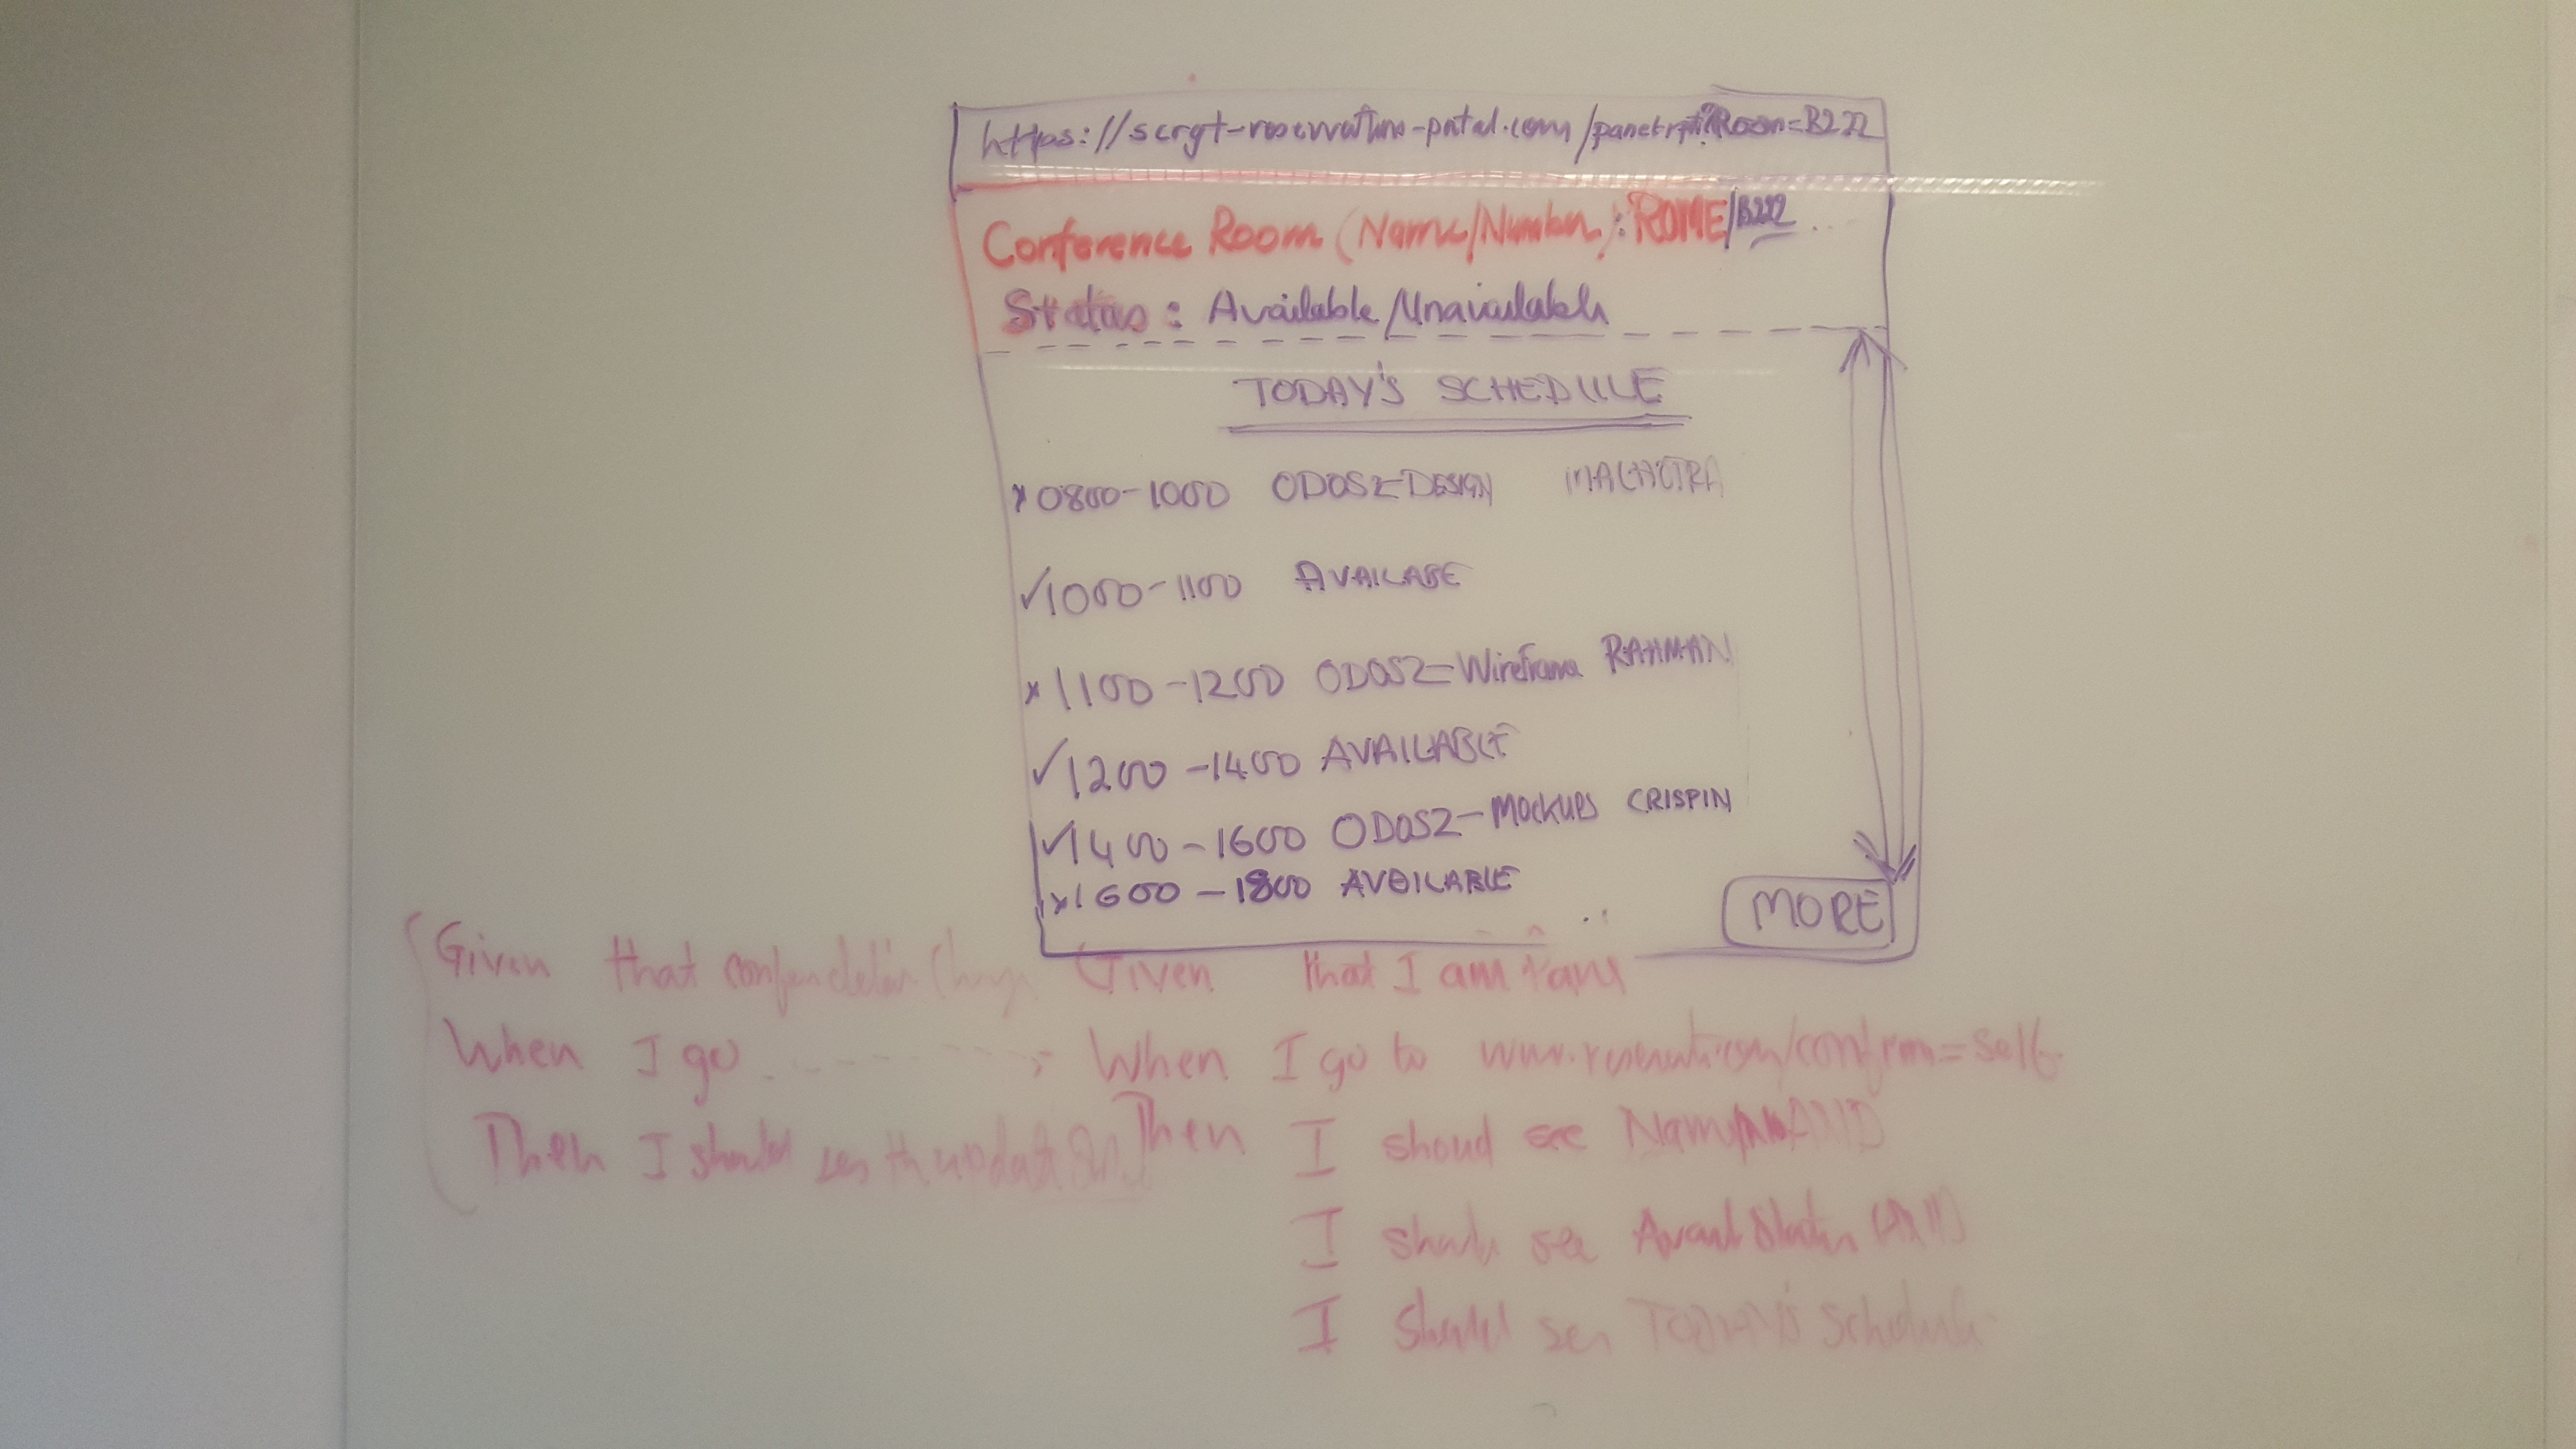 https://scrgt-reservations-portal.com/ ?Room=B222
Conference Room (Name/Number): ROME/B222
Status: Available/Unavailable
TODAY'S SCHEDULE
x 0800-1000 ODOS2-DESIGN MALHOTRA
✓ 1000-1100 AVAILABE
x 1100-1200 ODOS2-Wireframe RAHMAN
✓ 1200-1400 AVAILABLE
✓ 1400-1600 ODOS2-MOCKUPS CRISPIN
x 1600-1800 AVAILABLE
MORE
Given that
When I go
Then I should see the update
Given that I am
When I go to
Then I shoud see Name AND
I should see Status
I should see TODAY'S Schedule